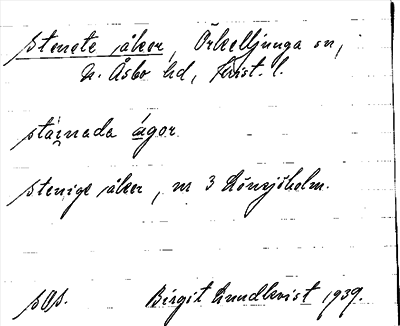 stenete åker, Örkelljunga sn,
N. Åsbo hd, Krist. l.
stai̯nada ágor
stenige åker, nr 3 Rönnjöholm.
sgs. Birgit Lundkvist 1939.